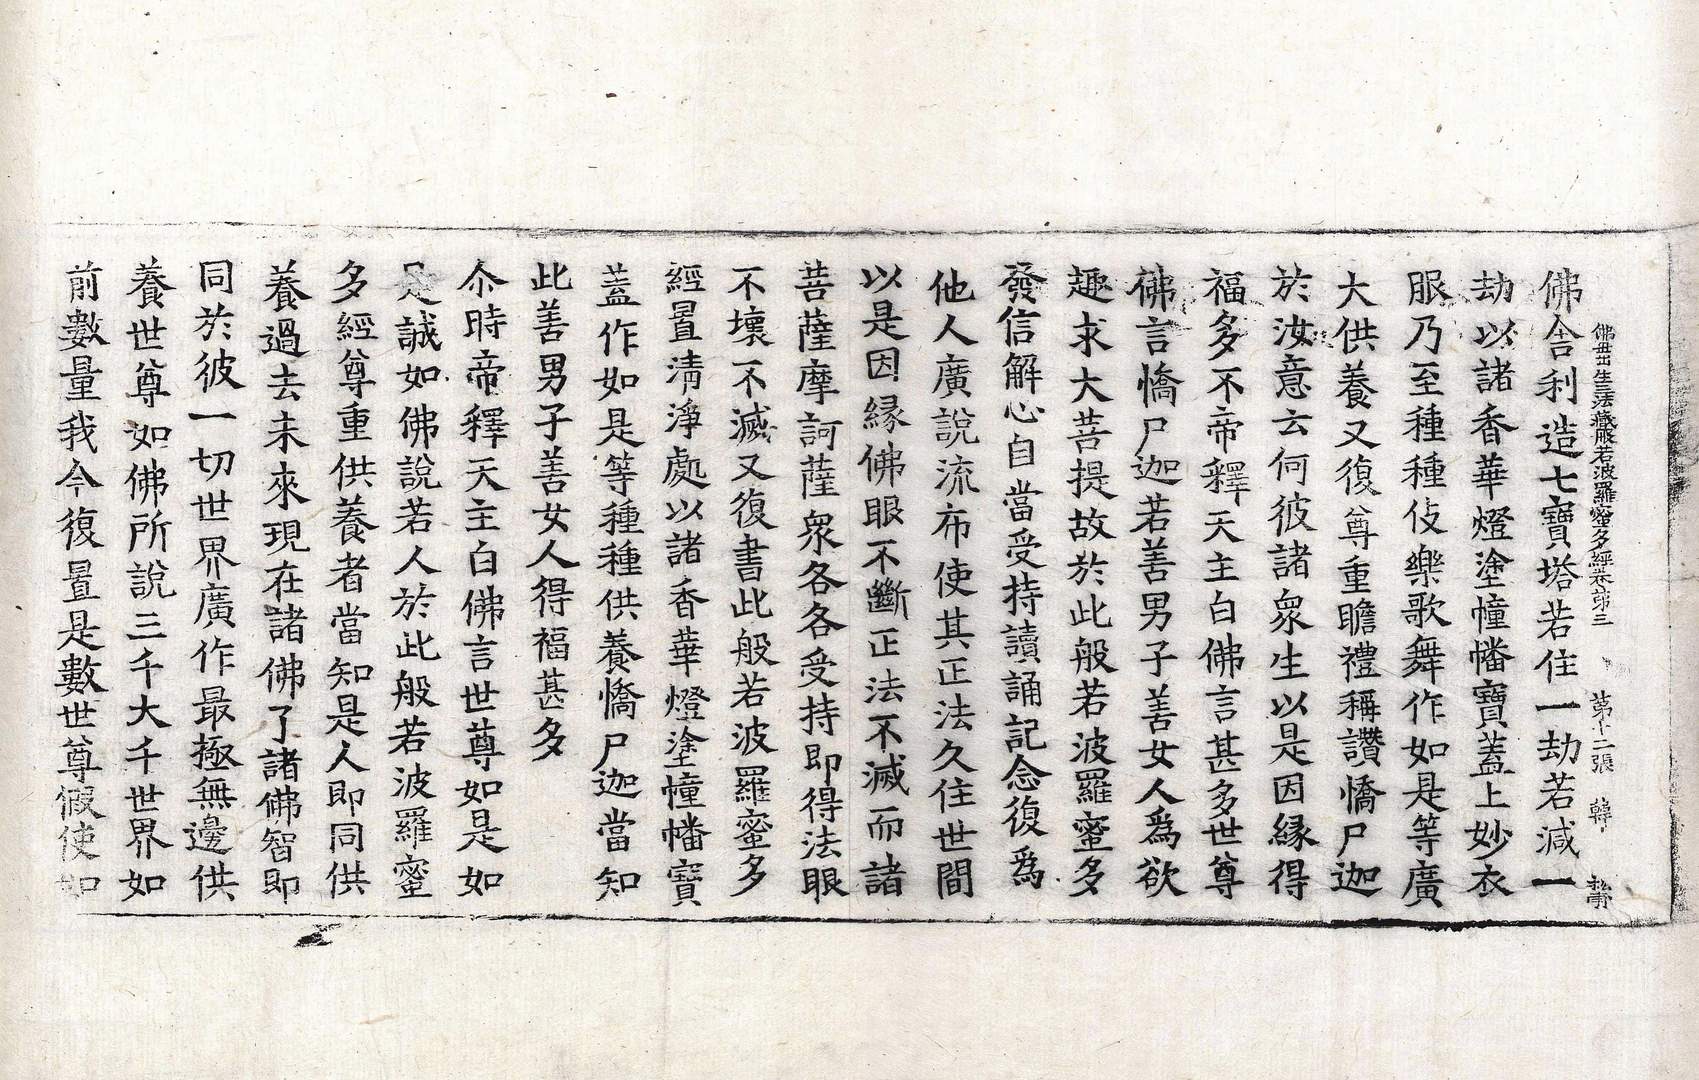 佛毋出生三法藏般若波羅蜜多經卷第三 第十二張 韓
佛舍利造七寶塔若住一劫若減一
劫以諸香華燈塗幢幡寶蓋上妙衣
服乃至種種伎樂歌舞作如是等廣
大供養又復尊重瞻禮稱讚憍尸迦
於汝意云何彼諸衆生以是因緣得
福多不帝釋天主白佛言甚多世尊
佛言憍尸迦若善男子善女人爲欲
趣求大菩提故於此般若波羅蜜多
發信解心自當受持讀誦記念復爲
他人廣說流布使其正法久住世間
以是因緣佛眼不斷正法不滅而諸
菩薩摩訶薩衆各各受持即得法眼
不壞不滅又復書此般若波羅蜜多
經置清淨處以諸香華燈塗幢幡寶
蓋作如是等種種供養憍尸迦當知
此善男子善女人得福甚多
尒時帝釋天主白佛言世尊如是如
是誠如佛說若人於此般若波羅蜜
多經尊重供養者當知是人即同供
養過去未來現在諸佛了諸佛智即
同於彼一切世界廣作最極無邊供
養世尊如佛所說三千大千世界如
前數量我今復置是數世尊假使如